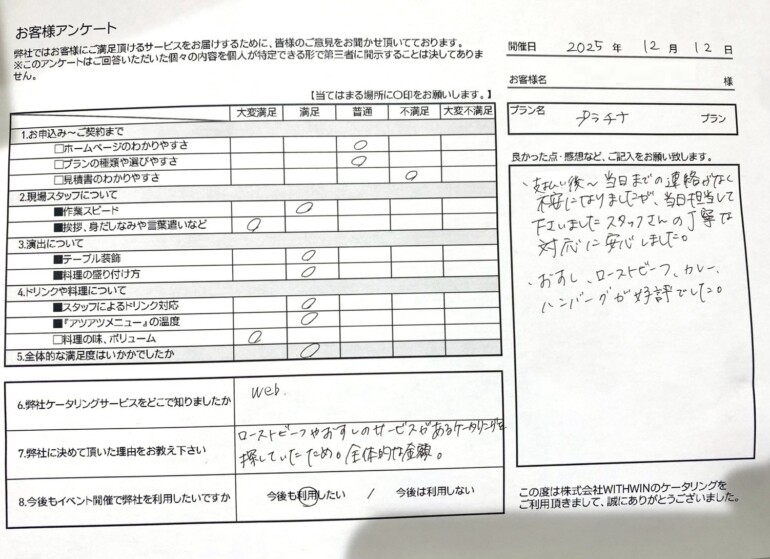 お客様アンケート
弊社ではお客様にご満足頂けるサービスをお届けするために、皆様のご意見をお聞かせ頂いてております。
※このアンケートはご回答いただいた個々の内容を個人が特定できる形で第三者に開示することは決してありま
せん。
【当てはまる場所に〇印をお願いします。】
大変満足 満足 普通 不満足 大変不満足
1.お申込み～ご契約まで
□ホームページのわかりやすさ ○
□プランの種類や選びやすさ ○
□見積書のわかりやすさ ○
2.現場スタッフについて
■作業スピード ○
■挨拶、身だしなみや言葉遣いなど ○
3.演出について
■テーブル装飾 ○
■料理の盛り付け方 ○
4.ドリンクや料理について
■スタッフによるドリンク対応 ○
■『アツアツメニュー』の温度 ○
□料理の味、ボリューム ○
5.全体的な満足度はいかかでしたか ○
6.弊社ケータリングサービスをどこで知りましたか
web.
7.弊社に決めて頂いた理由をお教え下さい
ローストビーフやおすしのサービスがあるケータリングを
探していたため。全体的な金額。
8.今後もイベント開催で弊社を利用したいですか
今後も利用したい / 今後は利用しない
開催日 2025 年 12 月 12 日
お客様名 様
プラン名 プラチナ プラン
良かった点・感想など、ご記入をお願い致します。
・支払い後～当日までの連絡がなく
不安になりましたが、当日担当して
下さいましたスタッフさんの丁寧な
対応に安心しました。
・おすし、ローストビーフ、カレー、
ハンバーグが好評でした。
この度は株式会社WITHWINのケータリングを
ご利用頂きまして、誠にありがとうございました。